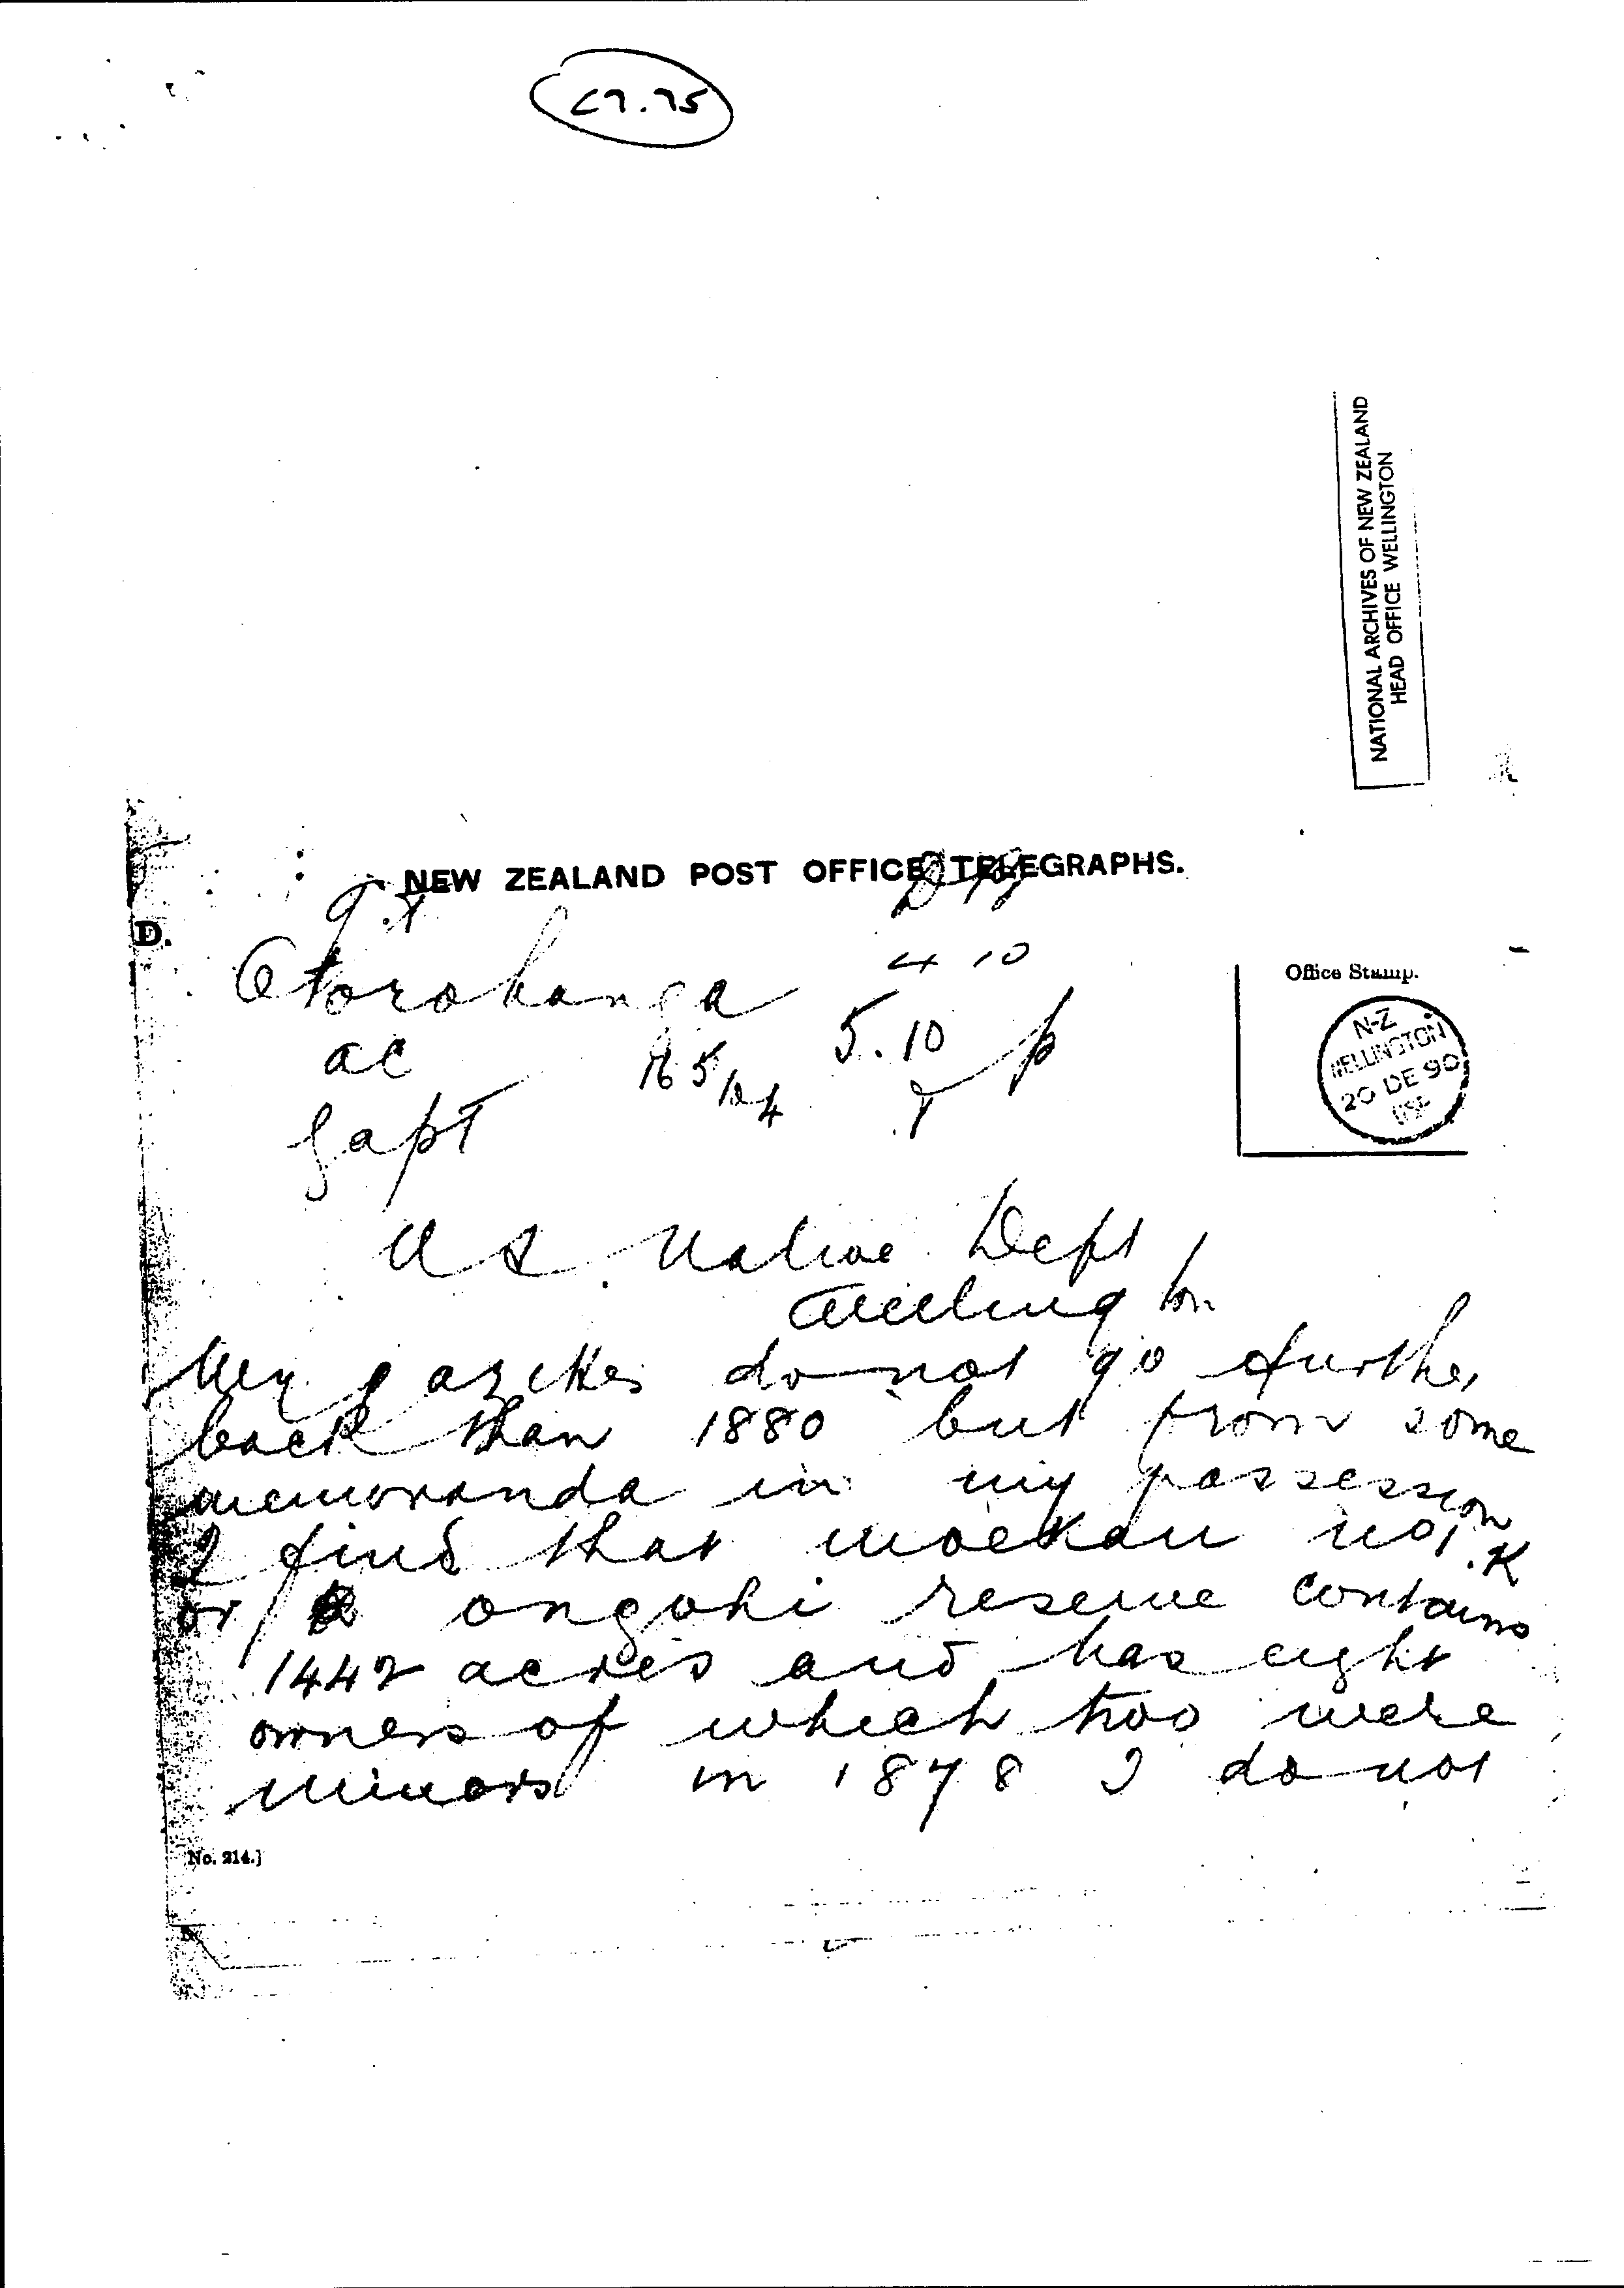 NATIONAL ARCHIVES OF NEW ZEALAND
HEAD OFFICE WELLINGTON
NEW ZEALAND POST OFFICE TELEGRAPHS.
D.
Otorohanga
4 10
5.10 p
Office Stamp.
N-Z
WELLINGTON
20 DE 90
US Native Dept
Wellington
My gazettes do not go further
back than 1880 but from some
memoranda in my possession
I find that moekau no 1.K
or ongohi reserve contains
1442 acres and has eight
owners of which two were
minors in 1878 I do not
No. 214.]